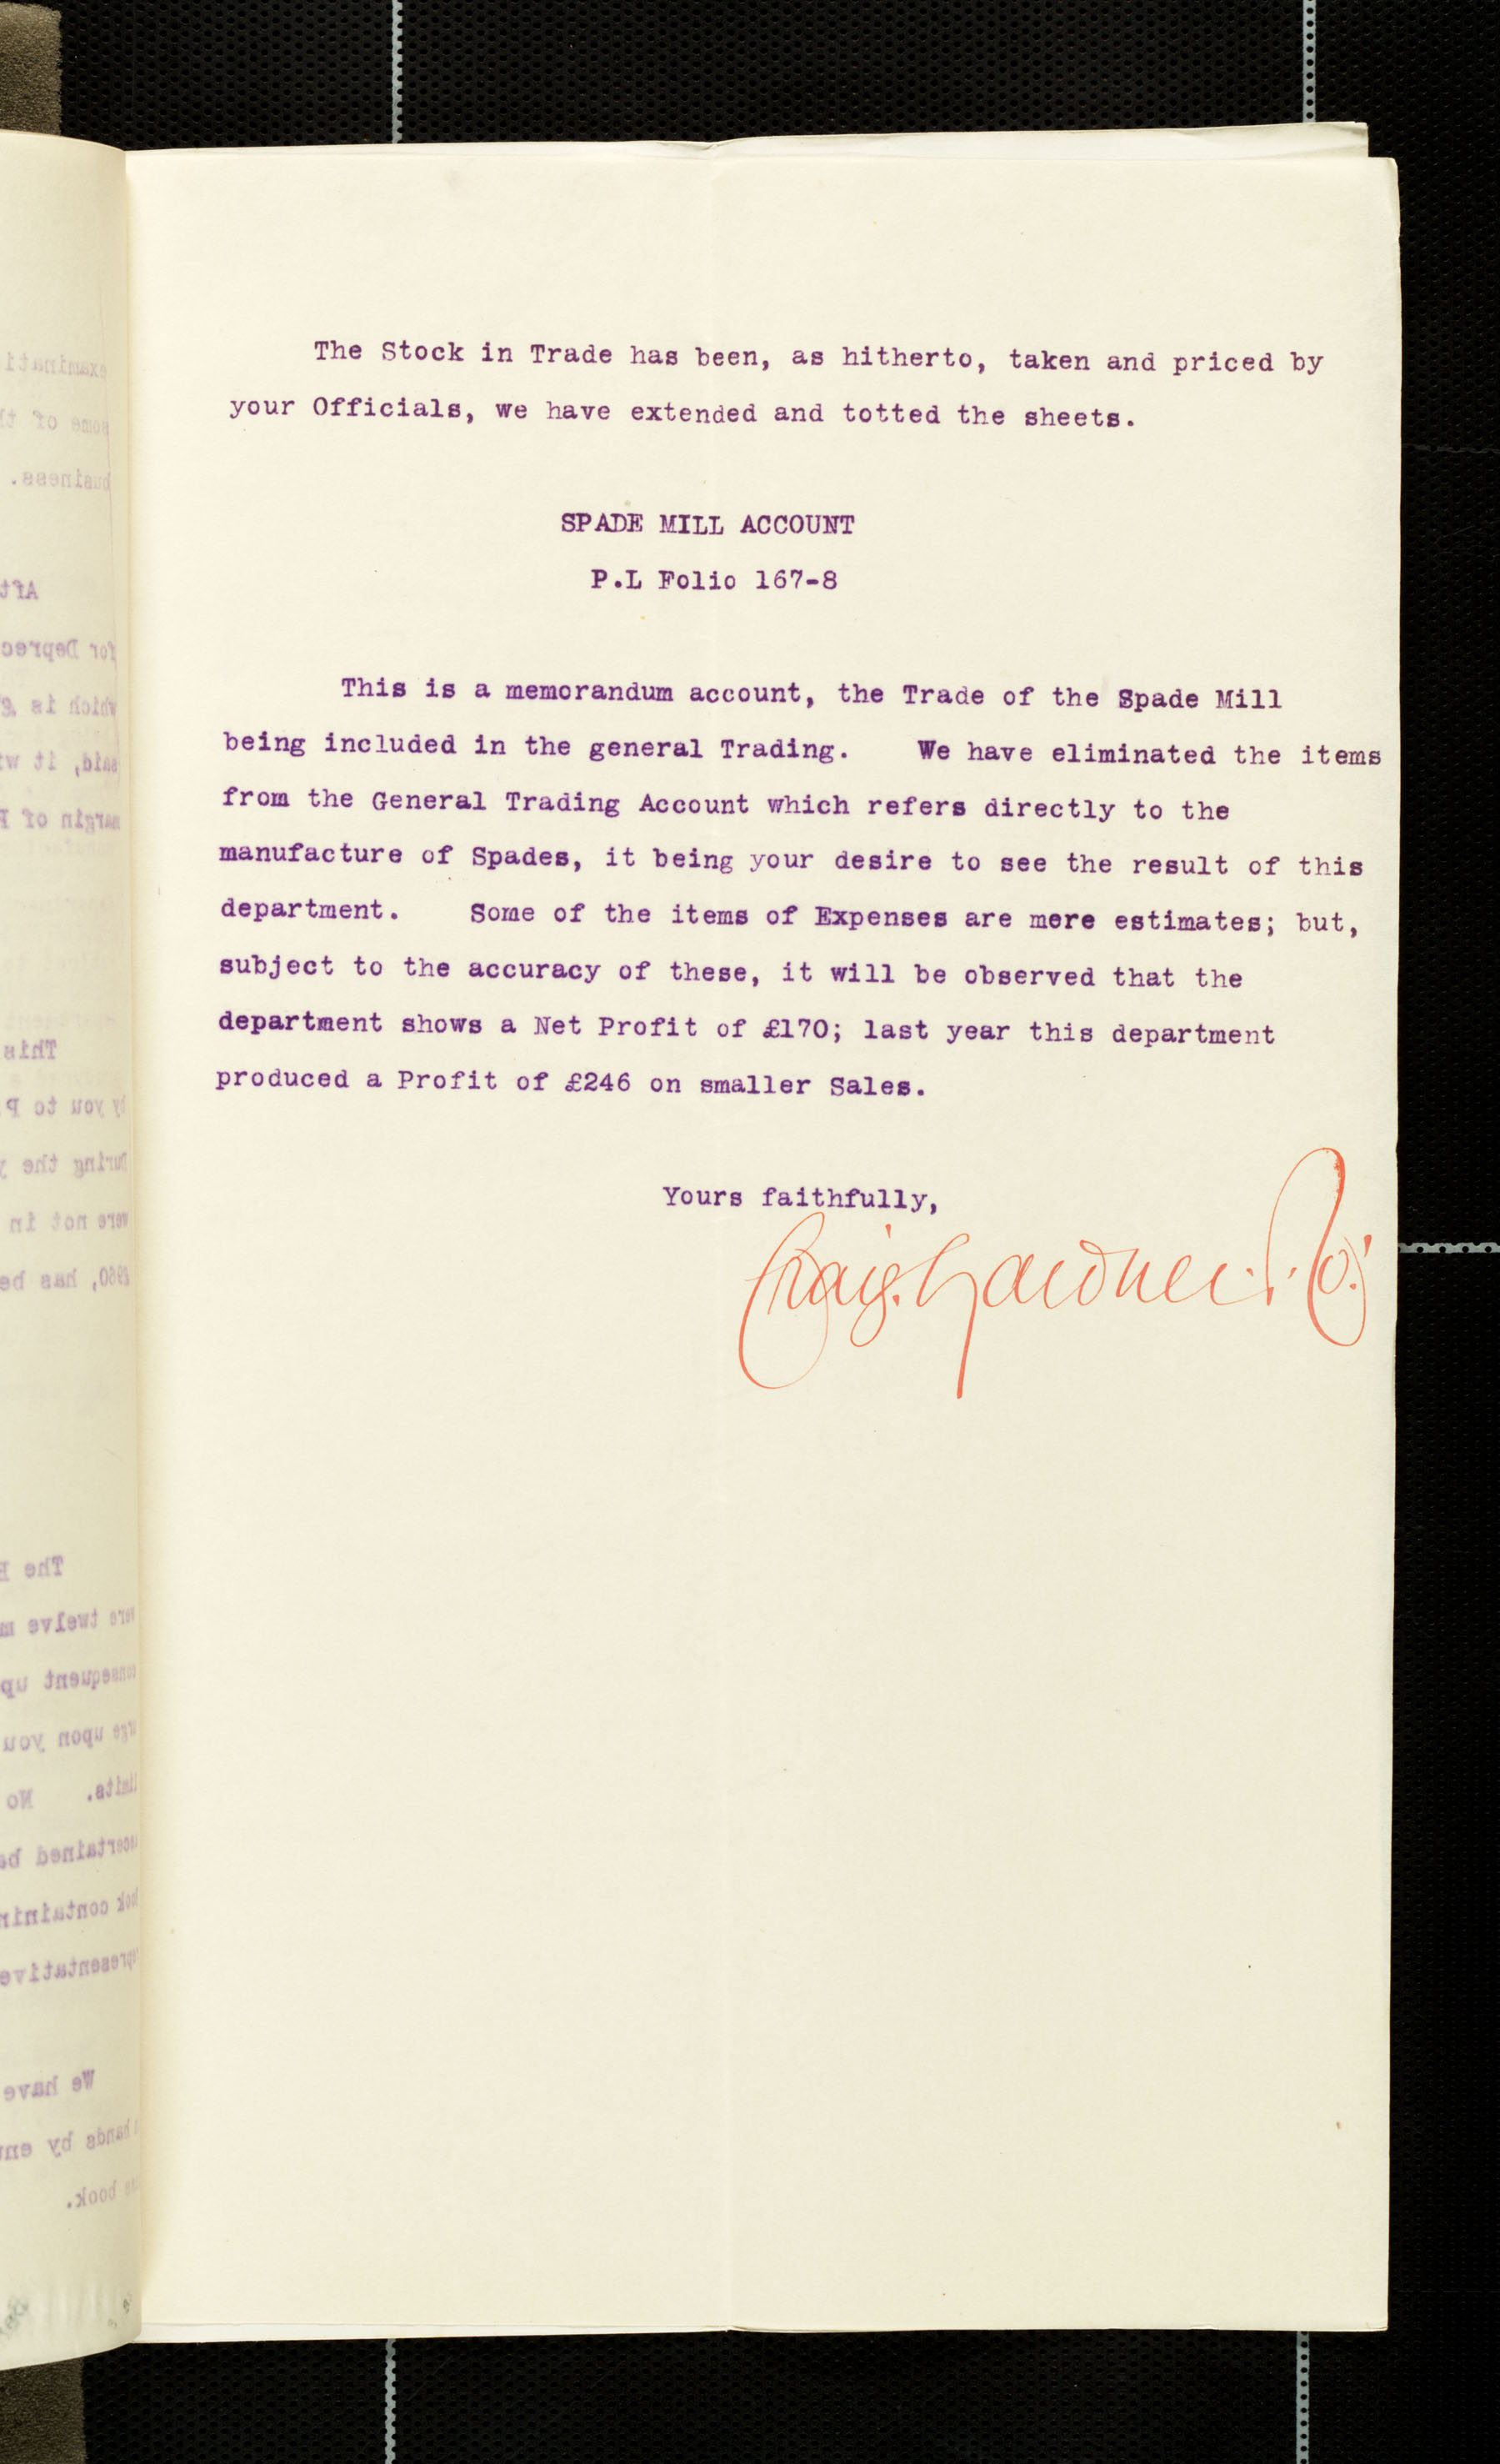 The Stock in Trade has been, as hitherto, taken and priced by
your Officials, we have extended and totted the sheets.
SPADE MILL ACCOUNT
P.L Folio 167-8
This is a memorandum account, the Trade of the Spade Mill
being included in the general Trading. We have eliminated the items
from the General Trading Account which refers directly to the
manufacture of Spades, it being your desire to see the result of this
department. Some of the items of Expenses are mere estimates; but,
subject to the accuracy of these, it will be observed that the
department shows a Net Profit of £170; last year this department
produced a Profit of £246 on smaller Sales.
Yours faithfully,
Craig. Gardner